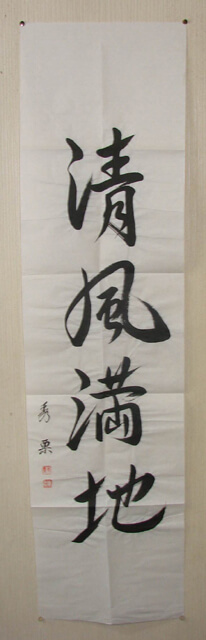 清風満地
秀粟